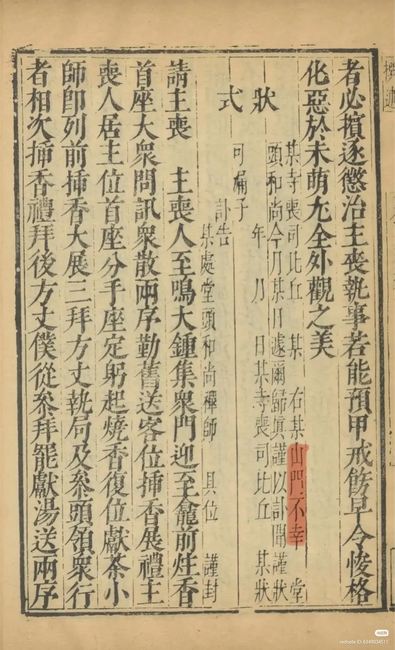 者必擯逐懲治主喪執事若能預甲戒飭早令悛格
化惡於未萌尤全外觀之美
狀 某寺喪司比丘 某 右某山門不幸堂
頭和尚今月某日遽爾歸真謹以訃聞謹狀
年 月 日某寺喪司比丘 某狀
式 可漏子
訃告
某處堂頭和尚禪師 具位 謹封
請主喪 主喪人至鳴大鍾集衆門迎至龕前炷香
首座大衆問訊衆散兩序勤舊送客位揷香展禮主
喪人居主位首座分手座定躬起燒香復位獻茶小
師卽列前揷香大展三拜方丈執局及叅頭領衆行
者相次揷香禮拜後方丈僕從叅拜罷獻湯送兩序